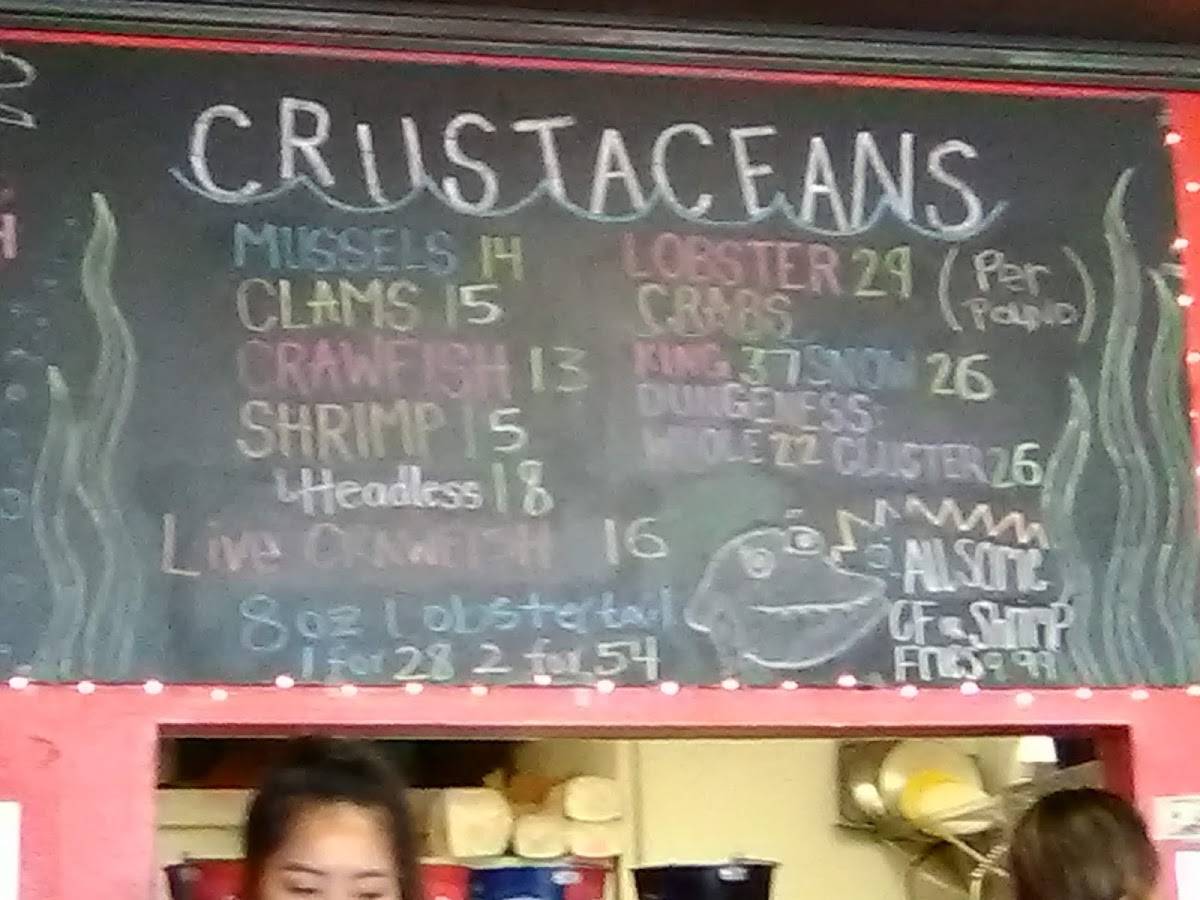 CRUSTACEANS
MUSSELS 14
CLAMS 15
CRAWFISH 13
SHRIMP 15
Headless 18
Live CRAWFISH 16
8 oz Lobstertail
1 for 28 2 for 54
LOBSTER 29 (Per Pound)
CRABS
KING 37 SNOW 26
DUNGENESS:
WHOLE 22 CLUSTER 26
AllSome
CF & Shrimp
FRIES 9.99